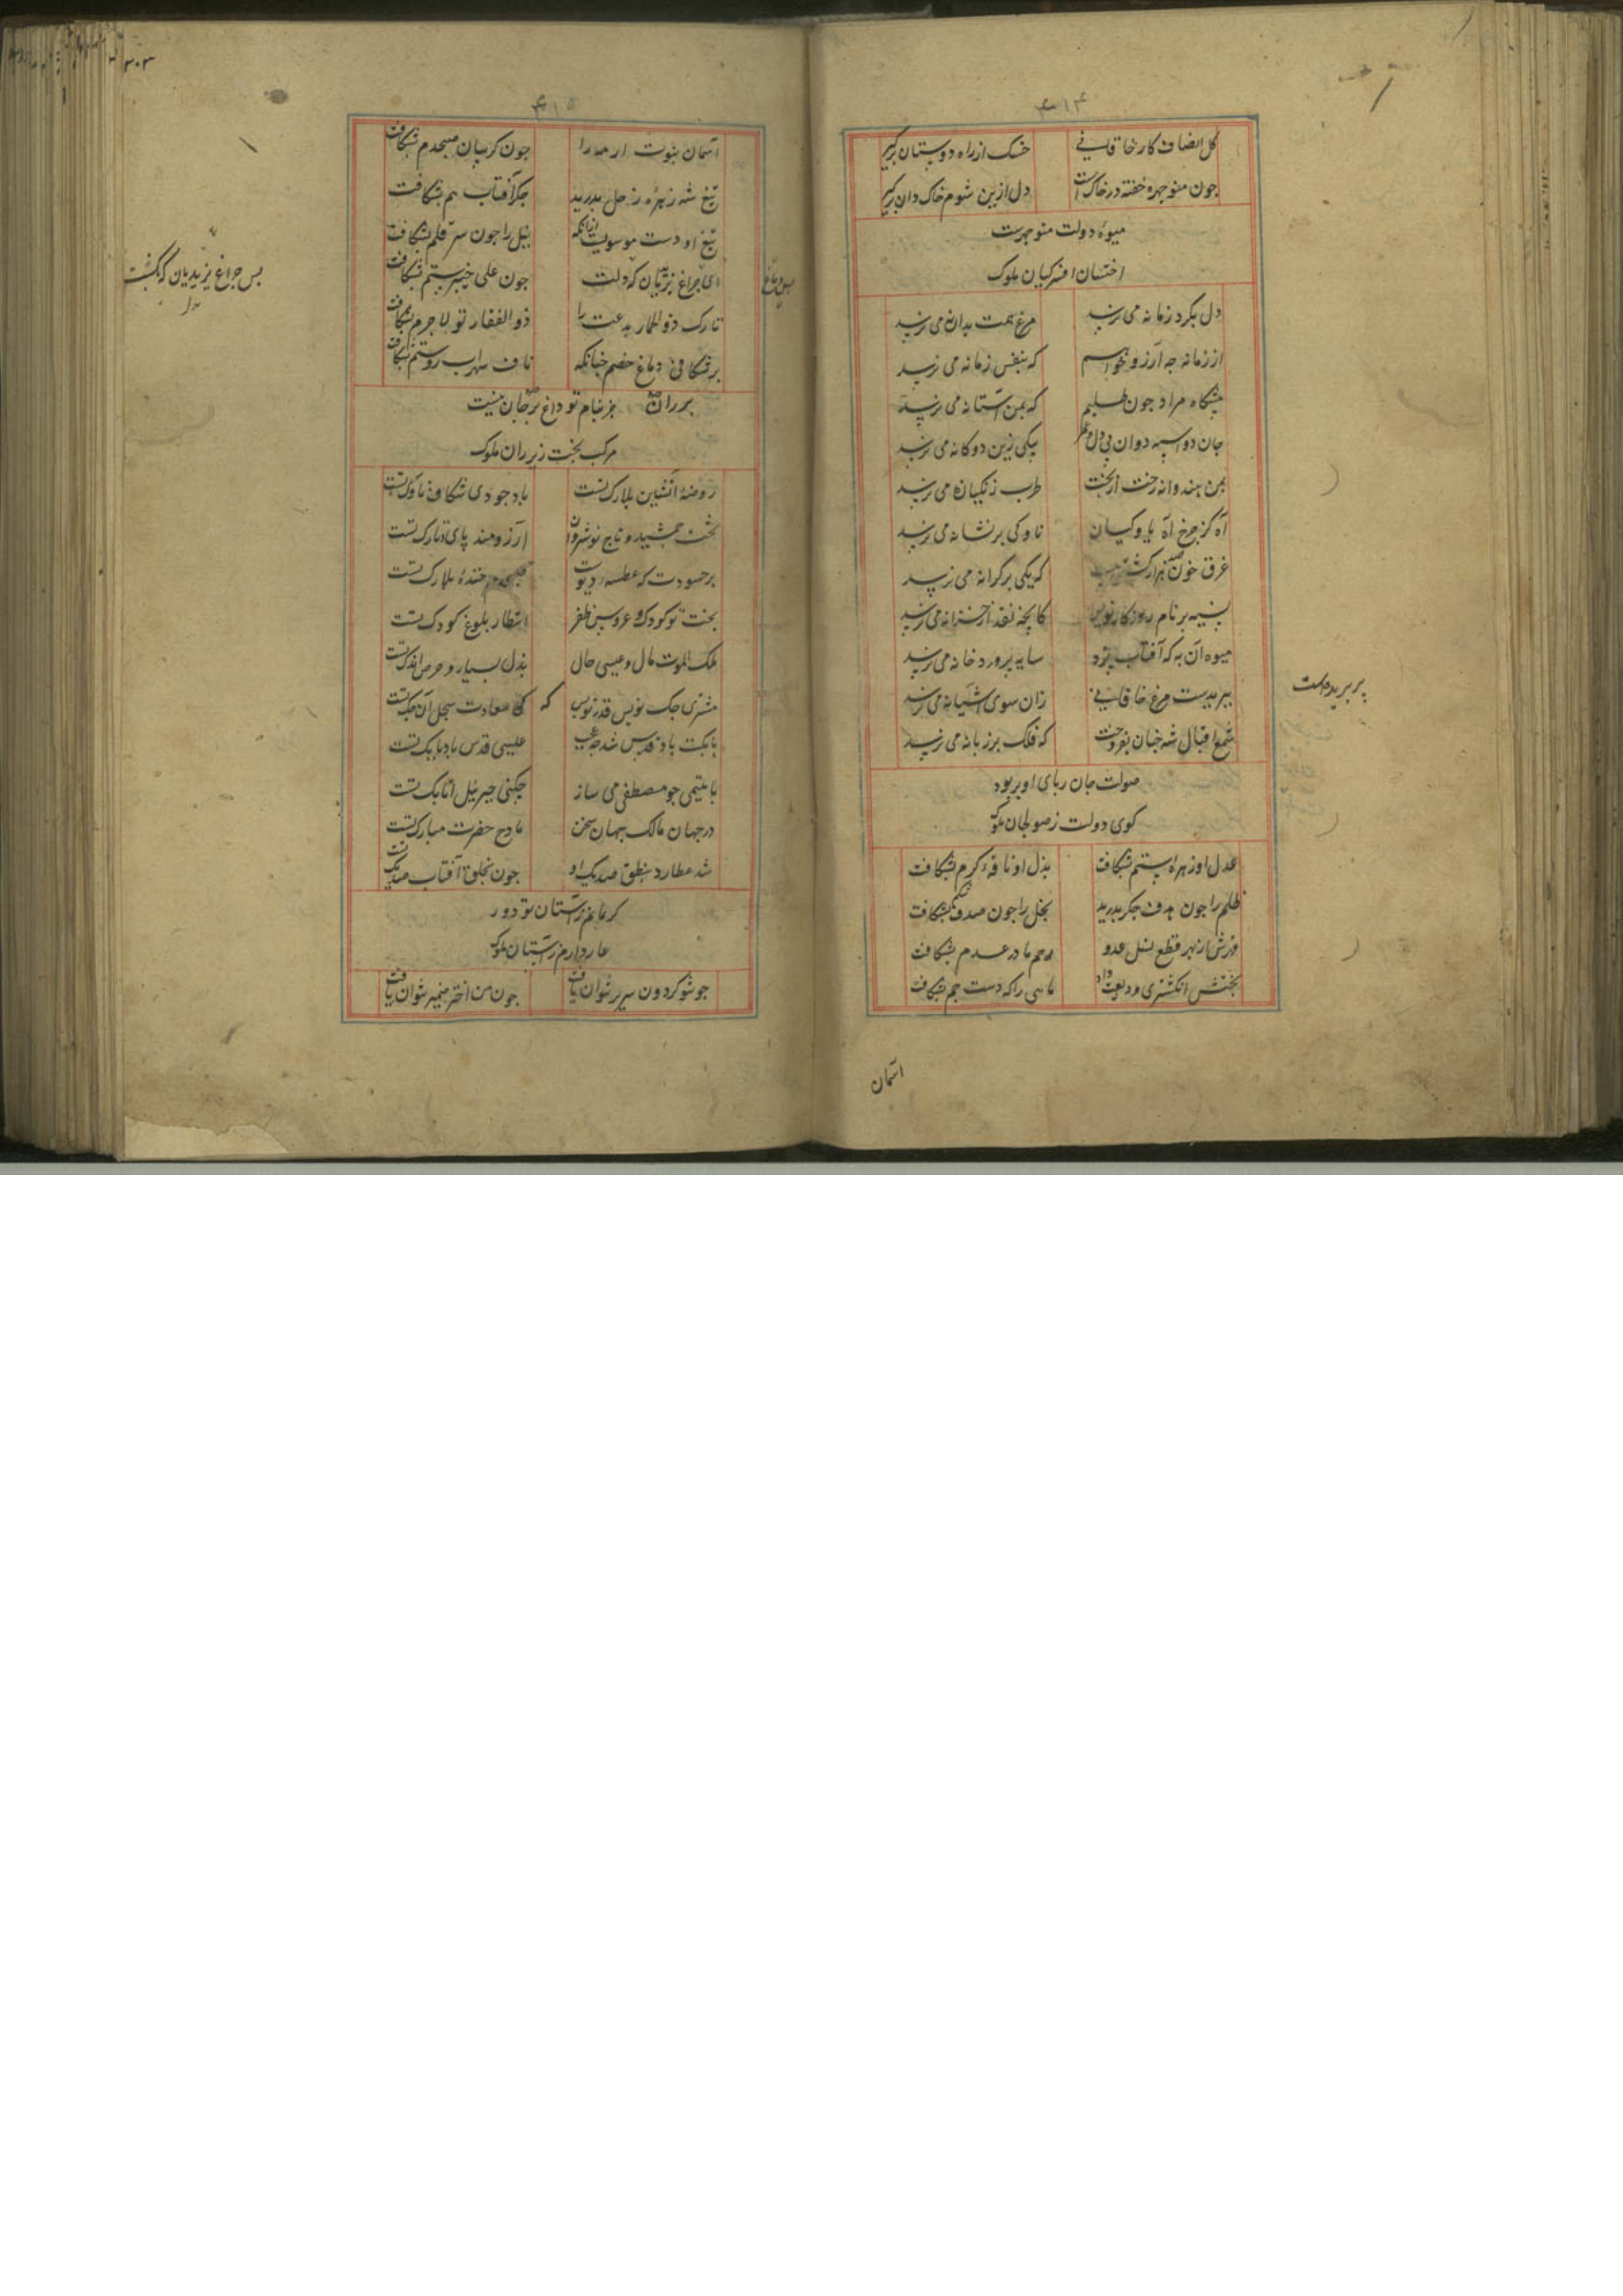 ۴۱۴
کل انصاف کار خاقانی خسک از راه دوستان برکیر
جون منوجهر خفته در خاکست دل ازین شوم خاک دان برکیر
میوهٔ دولت منوجهرست
اخستان افسر کیان ملوک
دل بکرد زمانه می نرسد مرغ همت بدانه می نرسد
از زمانه جه آرزو خواهم که بنفس زمانه می نرسد
بیشکاه مراد جون طلبم که بمن آستانه می نرسد
جان دو اسبه دوان بی دل و عمر بیکی زین دوکانه می نرسد
بمن هندوانه رخت از بخت طرب زنکیانه می نرسد
آه کز جرخ آه یاوکیان ناوکی بر نشانه می نرسد
غرق خون صد هزار کشتی هست که یکی بر کرانه می نرسد
نسیه بر نام روزکار نویس کانجه نقد از خزانه می نرسد
میوه آن به که آفتاب بزد سایه برورد خانه می نرسد
ببر بدست مرغ خاقانی زان سوی آشیانه می نرسد
بر بریده است
شمع اقبال شه جنان بفروخت که فلک بر زبانه می نرسد
صولت جان ربای او بربود
کوی دولت ز صولجان ملوک
عدل او زهرهٔ ستم بشکافت بذل او نافهٔ کرم بشکافت
ظلم را جون هدف جکر بدرید بخل را جون صدف شکم بشکافت
قهرش از بهر قطع نسل عدو رحم مادر عدم بشکافت
بختش انکشتری ودیعت داد ماهی را که دست جم بشکافت
آسمان
۳۰۳
۴۱۵
آسمان بنوت ار مه را جون کریبان صبحدم بشکافت
تیغ شه زهرهٔ زحل بدرید جکر آفتاب هم بشکافت
تیغ او دست موسویست ازانکه نیل را جون سر قلم بشکافت
ای جراغ یزیدیان که دلت جون علی خیبر ستم بشکافت
بس جراغ یزیدیان که بکشت
تارک ذو الخمار بدعت را ذو الفقار تو لاجرم بشکافت
بر شکافی دماغ خصم جنانکه ناف سهراب روستم بشکافت
بر ران جز بنام تو داغ بر جان نیست
مرکب بخت زیر ران ملوک
روضهٔ آتشین بلارک تست باد جودی شکاف ناوک تست
تخت جمشید و تاج نوشروان آرزومند بای و تارک تست
بر حسودت که عطسهٔ دیوست صبحدم خندهٔ بلارک تست
بخت تو کودک و عروس ظفر انتظار بلوغ کودک تست
ملک الموت مال و عیسی حال بذل بسیار و حرص اندک تست
مشتری جک نویس قدر تو بس که سعادت سجل آن جک تست
بابکت باد قدس شد جه عجب عیسی قدس باد بابک تست
با یتیمی جو مصطفی می ساز جکنی جبرئیل اتابک تست
در جهان مالک جهان سخن مادح حضرت مبارک تست
شد عطارد بنطق صد یک او جون بخلق آفتاب صد یک تست
کر بمانم ز آستان تو دور
عار دارم ز آستان ملوک
جو تو کردون سریر نتوان یافت جون من اختر ضمیر نتوان یافت